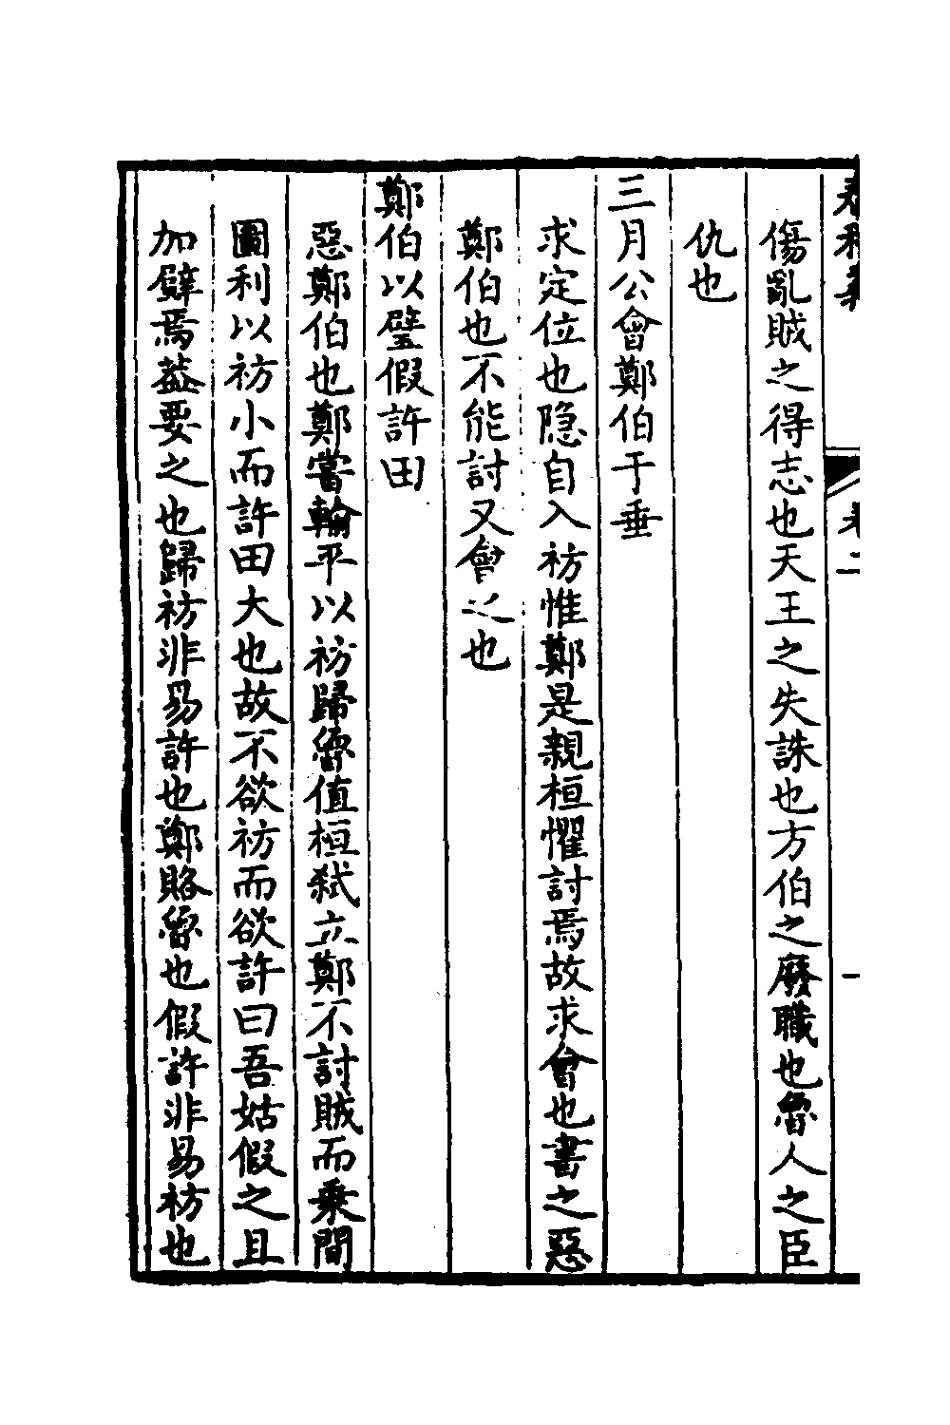 傷亂賊之得志也天王之失誅也方伯之廢職也魯人之臣
仇也
三月公會鄭伯于垂
求定位也隐自入祊惟鄭是親桓懼討焉故求會也書之惡
鄭伯也不能討又會之也
鄭伯以璧假許田
惡鄭伯也鄭嘗輸平以祊歸魯值桓弑立鄭不討賊而乗間
圖利以祊小而許田大也故不欲祊而欲許曰吾姑假之且
加璧焉葢要之也歸祊非易許也鄭賂魯也假許非易祊也